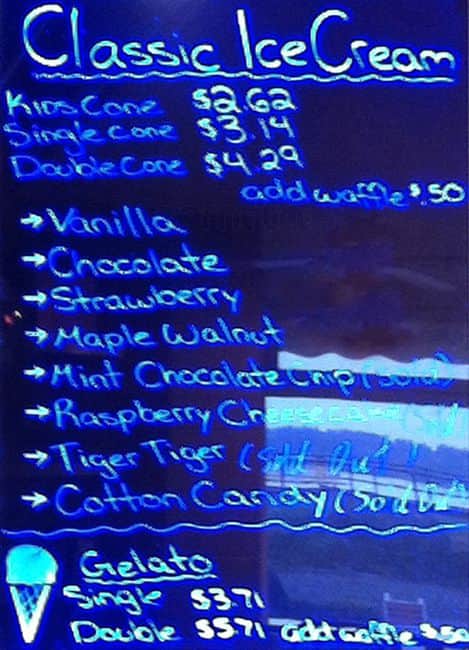 Classic Ice Cream
Kids Cone $2.62
Single cone $3.14
Double Cone $4.29
add waffle $.50
→ Vanilla
→ Chocolate
→ Strawberry
→ Maple Walnut
→ Mint Chocolate Chip (Sold)
→ Raspberry Cheesecake
→ Tiger Tiger (Sold Out)
→ Cotton Candy (Sold Out)
Gelato
Single $3.71
Double $5.71 add waffle $.50